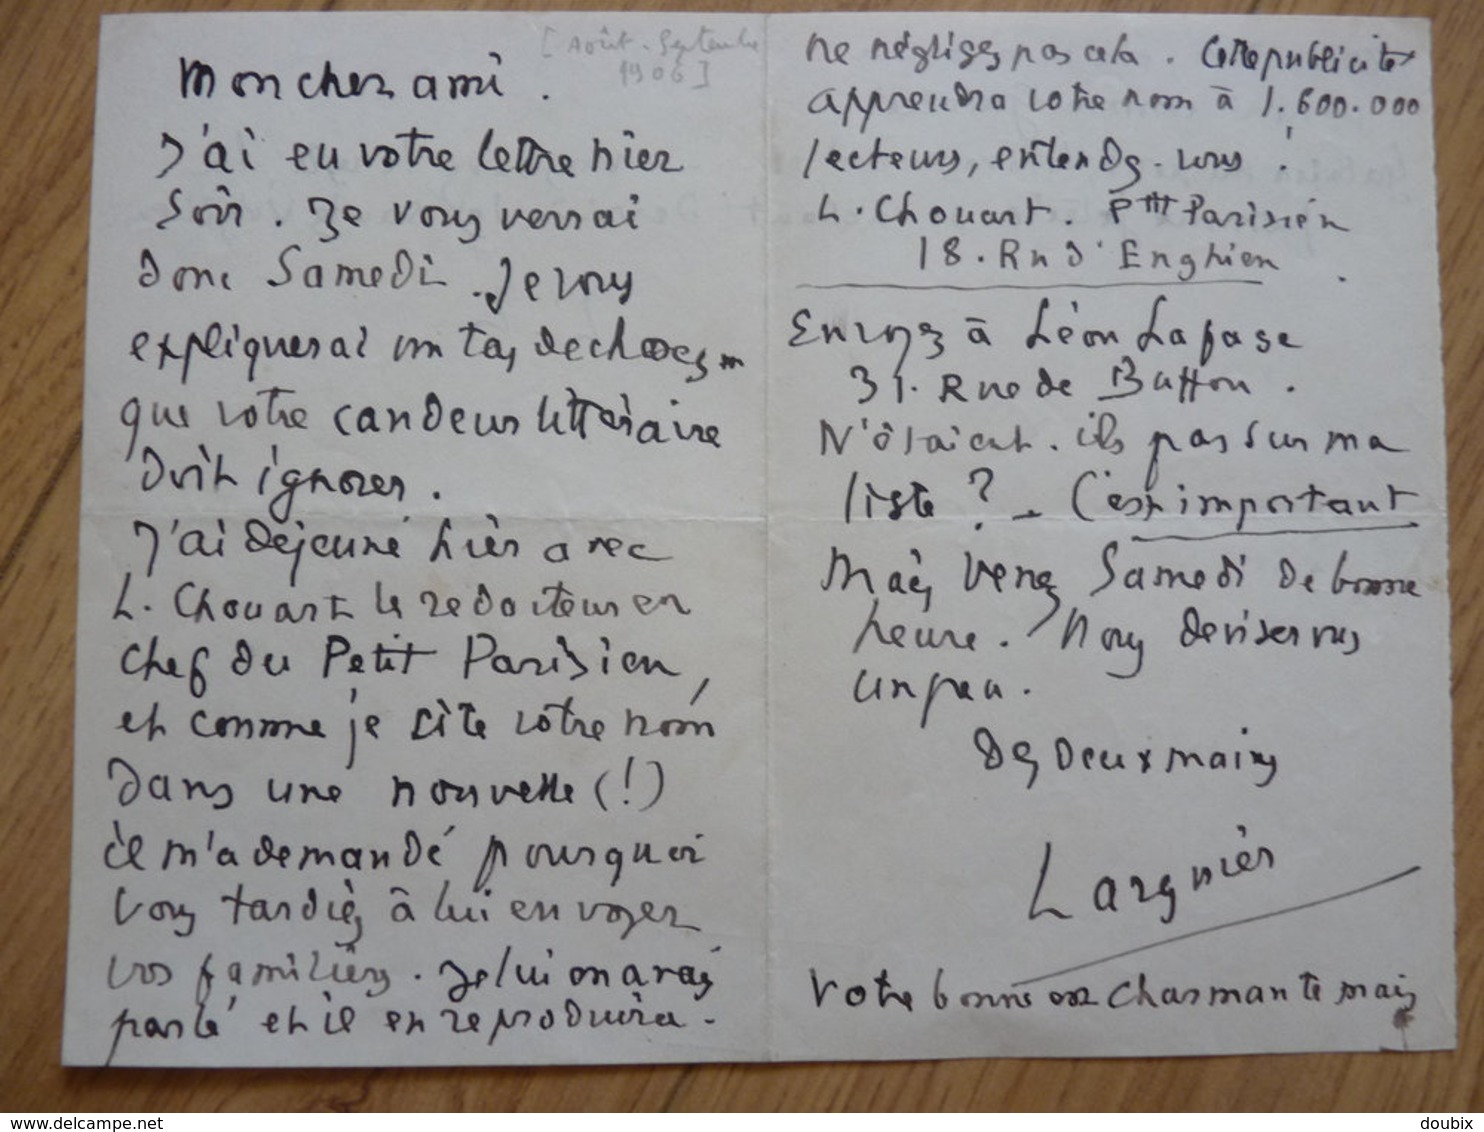 [Août-Septembre
1906]
Mon cher ami.
J'ai eu votre lettre hier
soir. Je vous verrai
donc Samedi. Je vous
expliquerai un tas de choses
que votre candeur littéraire
doit ignorer.
J'ai déjeuné hier avec
L. Chouart le redacteur en
chef du Petit Parisien,
et comme je cite votre nom
dans une nouvelle (!)
il m'a demandé pourquoi
vous tardiez à lui envoyer
vos familiers. Je lui en avais
parlé et il en reproduira.
ne négligez pas cela. Cette publicité
apprendra votre nom à 1.600.000
lecteurs, entendez-vous!
L. Chouart. Ptit Parisien
18. Rue d'Enghien.
Envoyez à Léon Lafage
31. Rue de Buffon.
N'étaient-ils pas sur ma
liste? - C'est important
Mais venez Samedi de bonne
heure. Nous deviserons
un peu.
Des deux mains
Larguier
Votre bonne est charmante mais
doubix